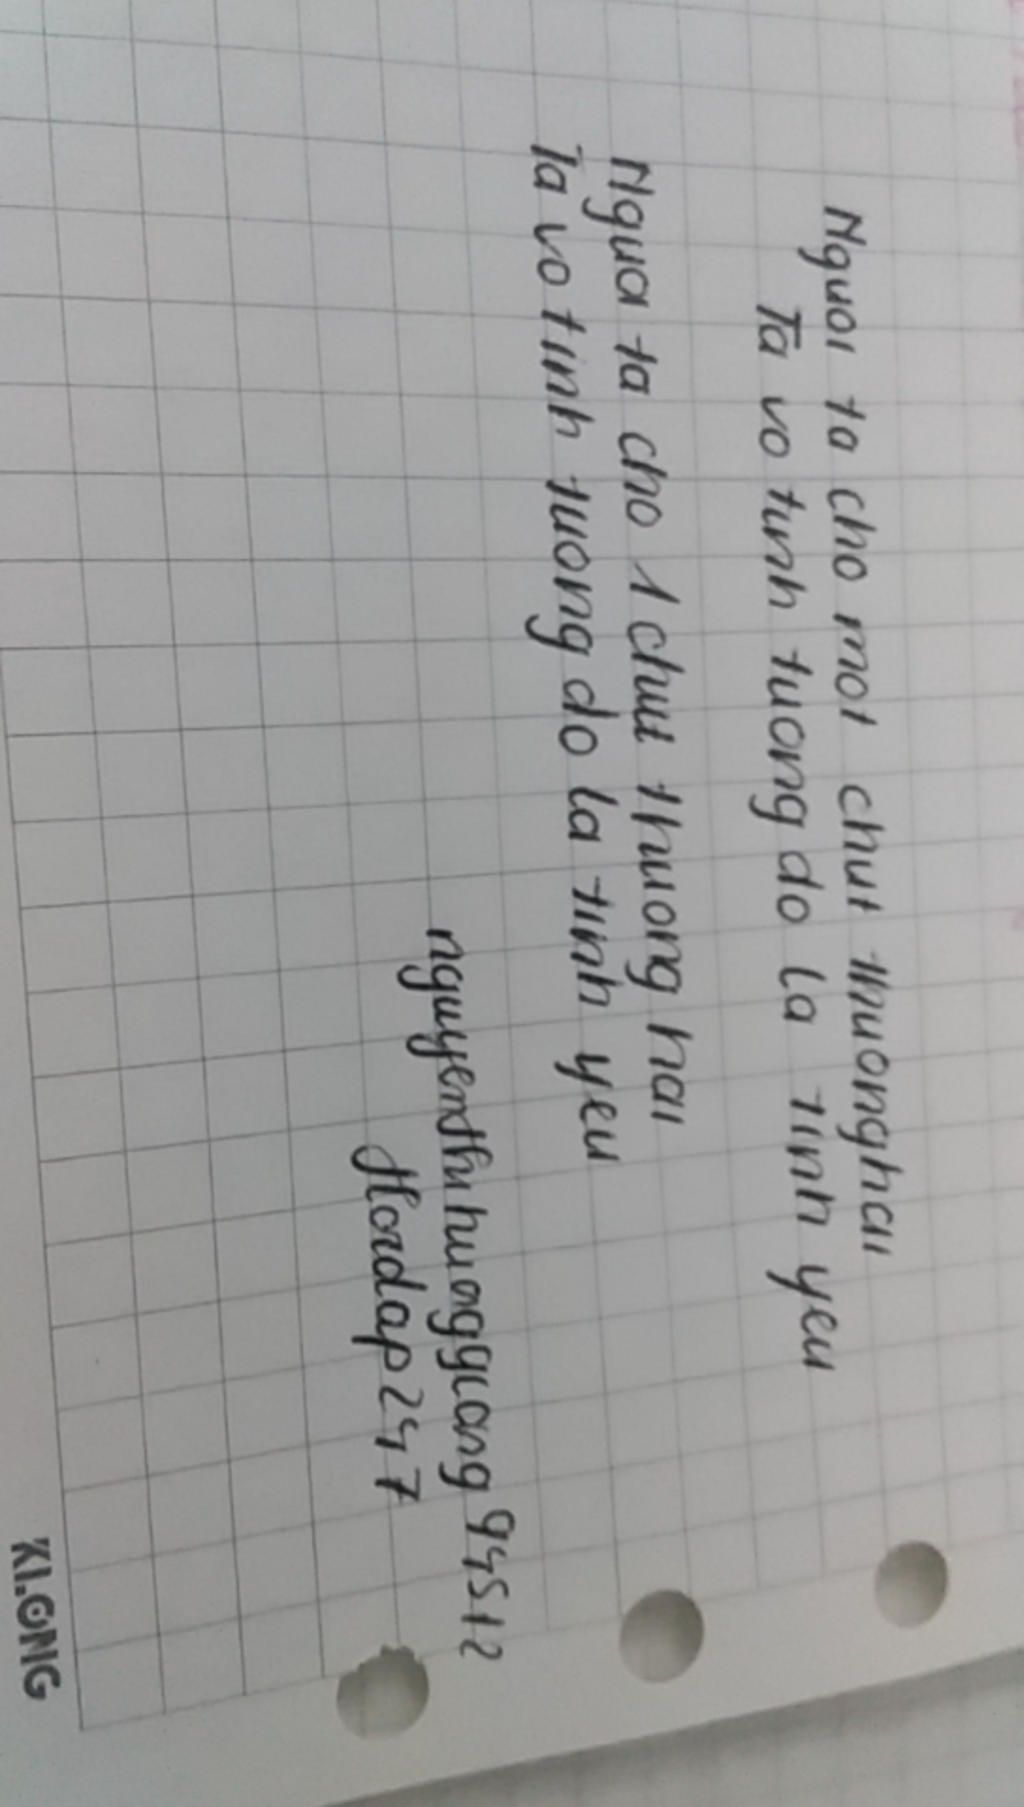 Nguoi ta cho mot chut thuonghai
Ta vo tinh tuong do la tinh yeu
Ngua ta cho 1 chut thuong hai
Ta vo tinh tuong do la tinh yeu
nguyenthihuoggiang94512
Hoidap247
KLONG